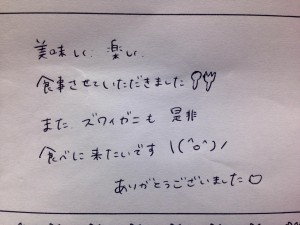 美味しい、楽しい、
食事させていただきました
また ズワイガニも 是非
食べに来たいです \(^o^)/
ありがとうございました♡